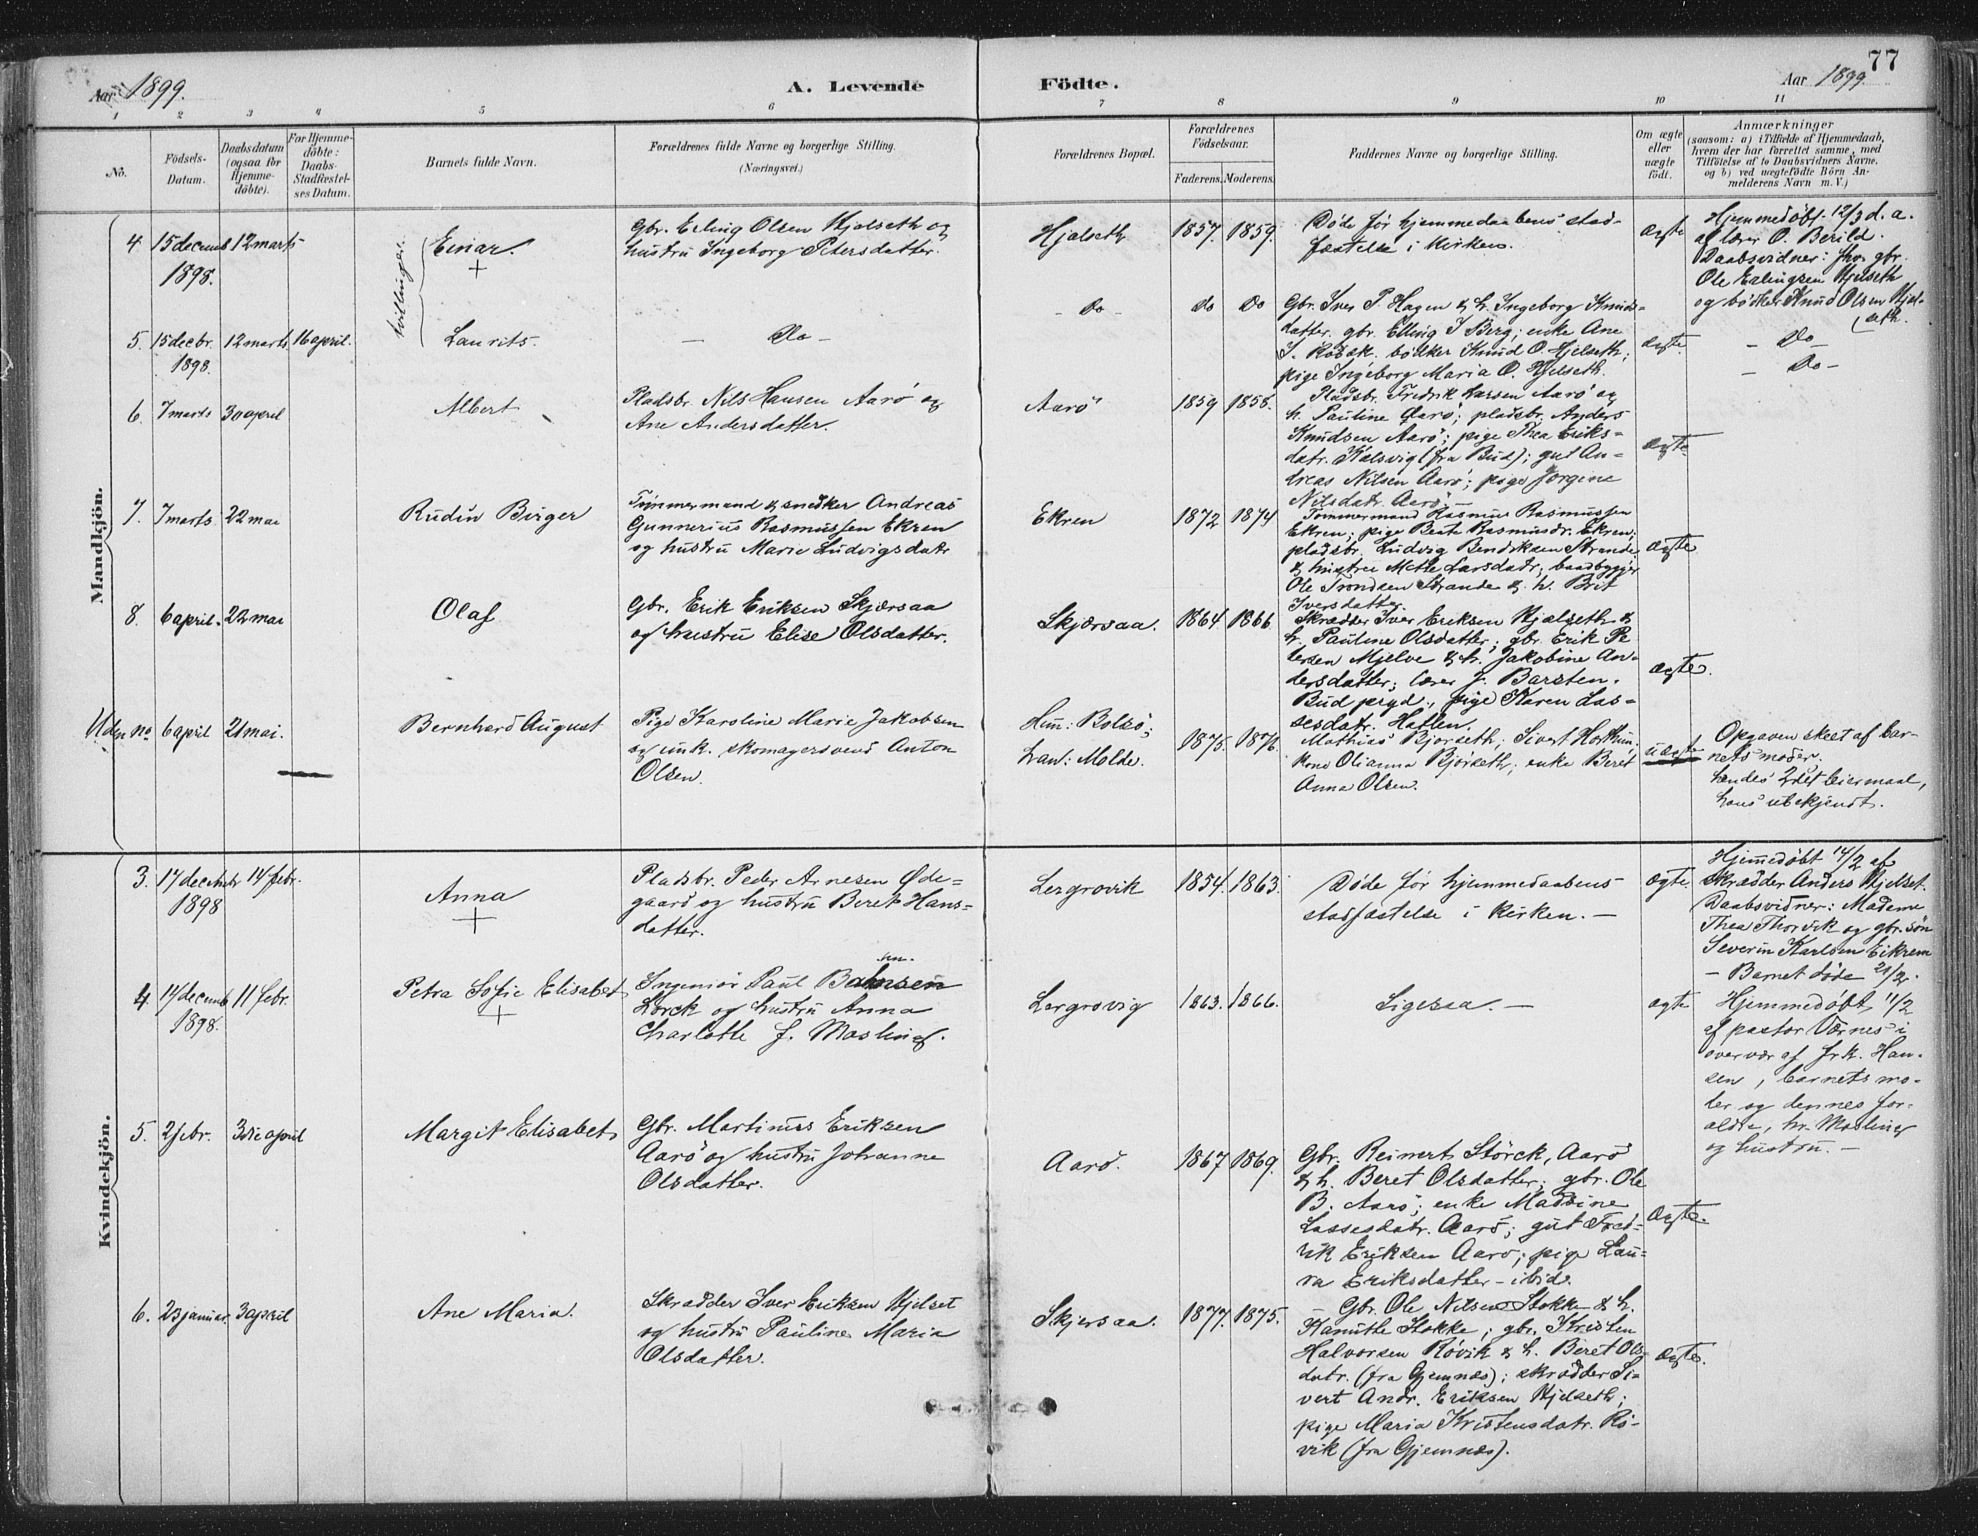 77
Aar 1899.
A. Levende Födte.
Aar 1899
1 2 3 4 5 6 7 8 9 10 11
No.
Födsels-
Datum.
Daabsdatum
(ogsaa for
Hjemme-
döbte).
For Hjemme-
döbte:
Daabs-
Stadfæstel-
ses Datum.
Barnets fulde Navn.
Forældrenes fulde Navne og borgerlige Stilling.
(Næringsvei.)
Forældrenes Bopæl.
Forældrenes
Födselsaar.
Faderens. Moderens.
Faddernes Navne og borgerlige Stilling.
Om ægte
eller
uægte
födt.
Anmærkninger
(saasom: a) i Tilfælde af Hjemmedaab,
hvem der har forrettet samme, med
Tilföielse af to Daabsvidners Navne,
og b) ved uægtefödte Börn An-
melderens Navn m. V.)
Mandkjön.
4. 15 decemb 1898. 12 marts
tvillinger
Einar. +
Gbr. Erling Olsen Hjelseth og
hustru Ingeborg Petersdatter.
Hjelseth 1857. 1859.
Döde før hjemmedaabens stad-
fæstelse i kirken.
ægte
Hjemmedøbt 12/3 d. a.
af lærer O. Berild.
Daabsvidner: fhv. gbr.
Ole Erlingsen Hjelseth
og bödker Knud Olsen Hjel-
seth.
5. 15 decbr. 1898. 12 marts. 16 april.
Laurits.
— Do —
- Do - Do Do
Gbr. Iver P. Hagen & h. Ingeborg Knuds-
datter. gbr. Elling I Berg; enke Ane
I. Röbæk. bödker Knud O. Hjelseth;
pige Ingeborg Maria O. Hjelseth.
ægte.
- Do -
- Do -
6. 7 marts 30 april
Albert
Pladsbr. Nils Hansen Aarö og
Ane Andersdatter.
Aarö 1859 1858.
Pladsbr. Fredrik Larsen Aarö og
h. Pauline Aarö; pladsbr. Anders
Knudsen Aarö; pige Thea Eriks-
datr. Kalsvig (fra Bud); gut An-
dreas Nilsen Aarö; pige Jorgine
Nilsdatr. Aarö. —
ægte.
7. 7 marts 22 mai
Rudin Birger
Tömmermand & snedker Andreas
Gunnerius Rasmussen Ekren
og hustru Marie Ludvigsdatr
Ekren 1872 1874
Tömmermand Rasmus Rasmussen
Ekren; pige Beate Rasmusdr. Ekren;
pladsbr. Ludvig Bendiksen Strande
& hustru Mette Larsdatr; baadbygger
Ole Trondsen Strande & h. Brit
Iversdatter.
ægte
8. 6 april. 22 mai
Olaf
Gbr. Erik Eriksen Skjærsaa
og hustru Elise Olsdatter.
Skjærsaa. 1864. 1866
Skrædder Iver Eriksen Hjelseth &
h. Pauline Olsdatter; gbr. Erik Pe
tersen Mjelve & h. Jakobine An-
dersdatter; lærer J. Barsten.
Bud prgd., pige Karen Las-
sesdatr. Hatlen.
ægte.
Uden no. 6 april 21 mai.
Bernhard August
Pige Karoline Marie Jakobsen
og unk. skomagersvend Anton
Olsen.
Hun: Bolsö;
Han: Molde.
1875. 1876.
Mathias Bjorseth; Sivert
kone Olianna Bjórseth; enke Beret
Anna Olsen.
uægte
Opgaven skeet af bar-
nets moder.
hendes 2det leiermaal,
hans ubekjendt.
Kvindekjön.
3. 17 decembr 1898 14 febr.
Anna +
Pladsbr. Peder Arnesen Øde-
gaard og hustru Beret Hans-
datter.
Lergrovik 1854. 1863.
Döde för hjemmedaabens
stadfæstelse i kirken. —
ægte.
Hjemmedöbt 14/2 af
skrædder Anders Hjelset.
Daabsvidner: Madame
Thea Thorvik og gbr. sön
Severin Karlsen Eikrem
— Barnet døde 21/2.
4 14 decemb 1898. 11 febr.
Petra Sofie Elisabet +
Ingeniör Paul
Lorck og hustru Anna
Charlotte J. Mosling.
Lergrovig 1863. 1866.
Ligesaa. —
ægte
Hjemmedöbt 11/2
af pastor Værnes i
overvær af frk. Han-
sen, barnets mo-
der og dennes for-
ældre, hr. Mosling
og hustru. —
5. 2 febr. 3die april
Margit Elisabet
Gbr. Martinus Eriksen
Aarö og hustru Johanne
Olsdatter.
Aarö. 1867 1869.
Gbr. Reinert Störck, Aarö
& h. Beret Olsdatter; gbr. Ole
B. Aarö; enke Madsine
Lassesdatr. Aarö; gut Fred-
rik Eriksen Aarö; pige Lau-
ra Eriksdatter - ibid.
ægte.
6. 23 januar. 3 april
Ane Maria.
Skrædder Iver Eriksen Hjelset
og hustru Pauline Maria
Olsdatter.
Skjersaa. 1877. 1875.
Gbr. Ole Nilsen Stokke & h.
Kanutte Stokke; gbr. Kristen
Halvorsen Rövik & h. Beret Ols-
datr. (fra Gjemnæs); skrædder Si-
vert Andr. Eriksen Hjelseth;
pige Maria Kristensdatr. Rö-
vik (fra Gjemnæs).
ægte.